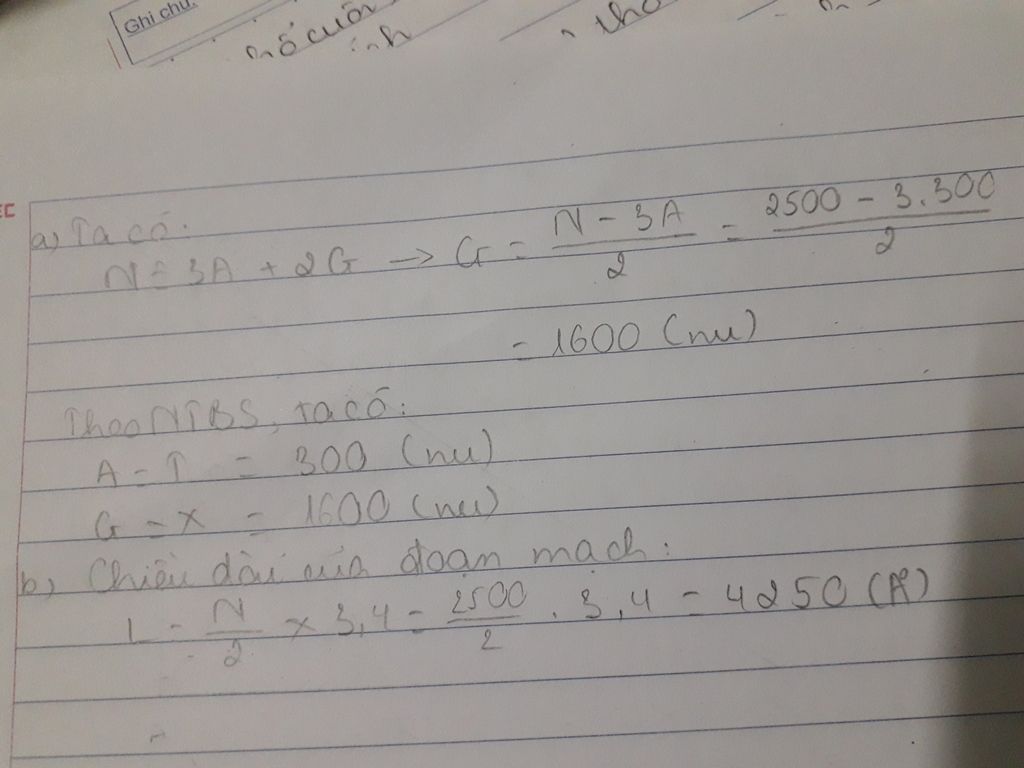 Ghi chú:
ố cuối
ính
EC
a) Ta có:
N = 3A + 2G → G = N - 3A / 2 = 2500 - 3.300 / 2
= 1600 (nu)
Theo NTBS, ta có:
A = T = 300 (nu)
G = X = 1600 (nu)
b) Chiều dài của đoạn mạch:
L = N / 2 × 3,4 = 2500 / 2 . 3,4 = 4250 (Å)